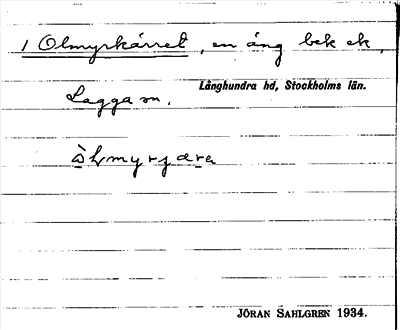 1 Olmyrkärret, en äng bek ek,
Långhundra hd, Stockholms län.
Lagga sn.
JÖRAN SAHLGREN 1934.